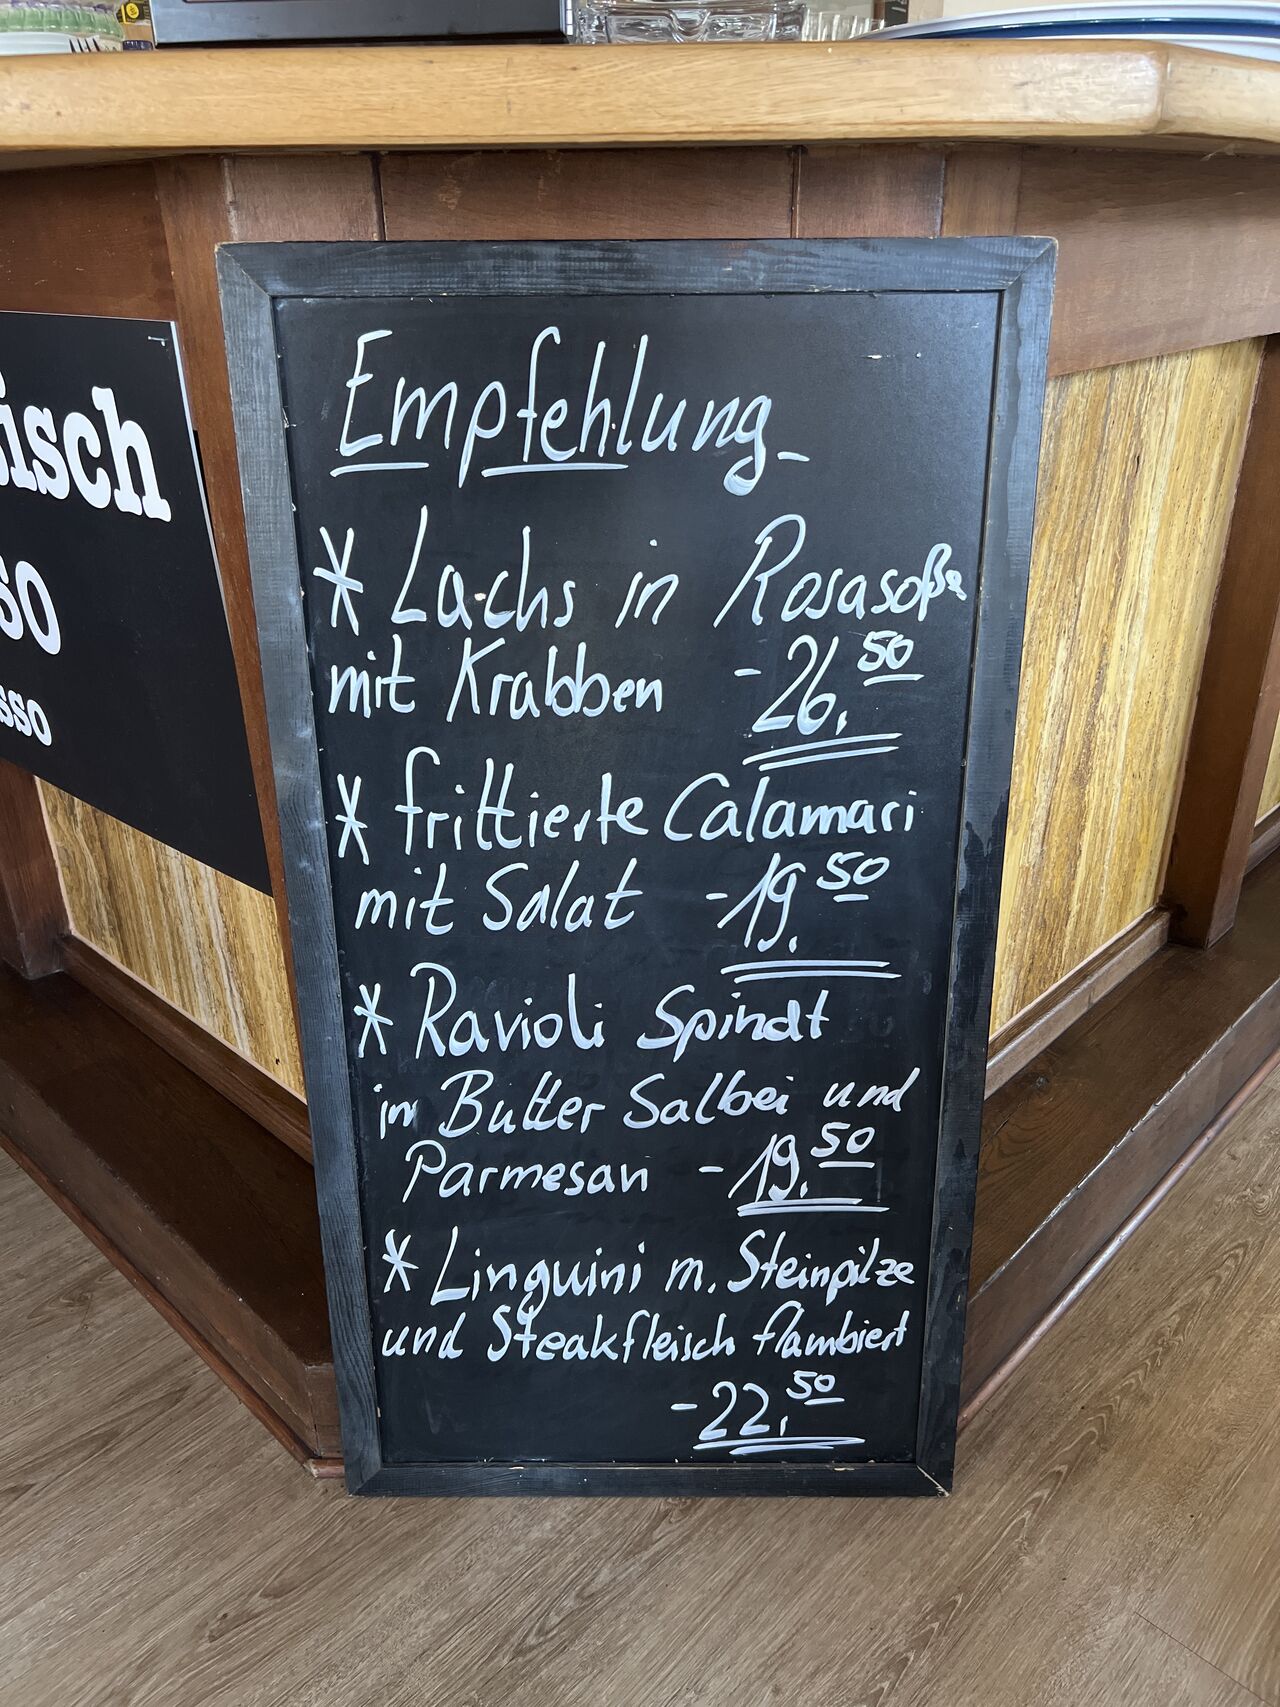 Empfehlung
* Lachs in Rosasoße
mit Krabben - 26,50
* frittierte Calamari
mit Salat - 19,50
* Ravioli Spinat
in Butter Salbei und
Parmesan - 19,50
* Linguini m. Steinpilze
und Steakfleisch flambiert
- 22,50
isch
60
sso